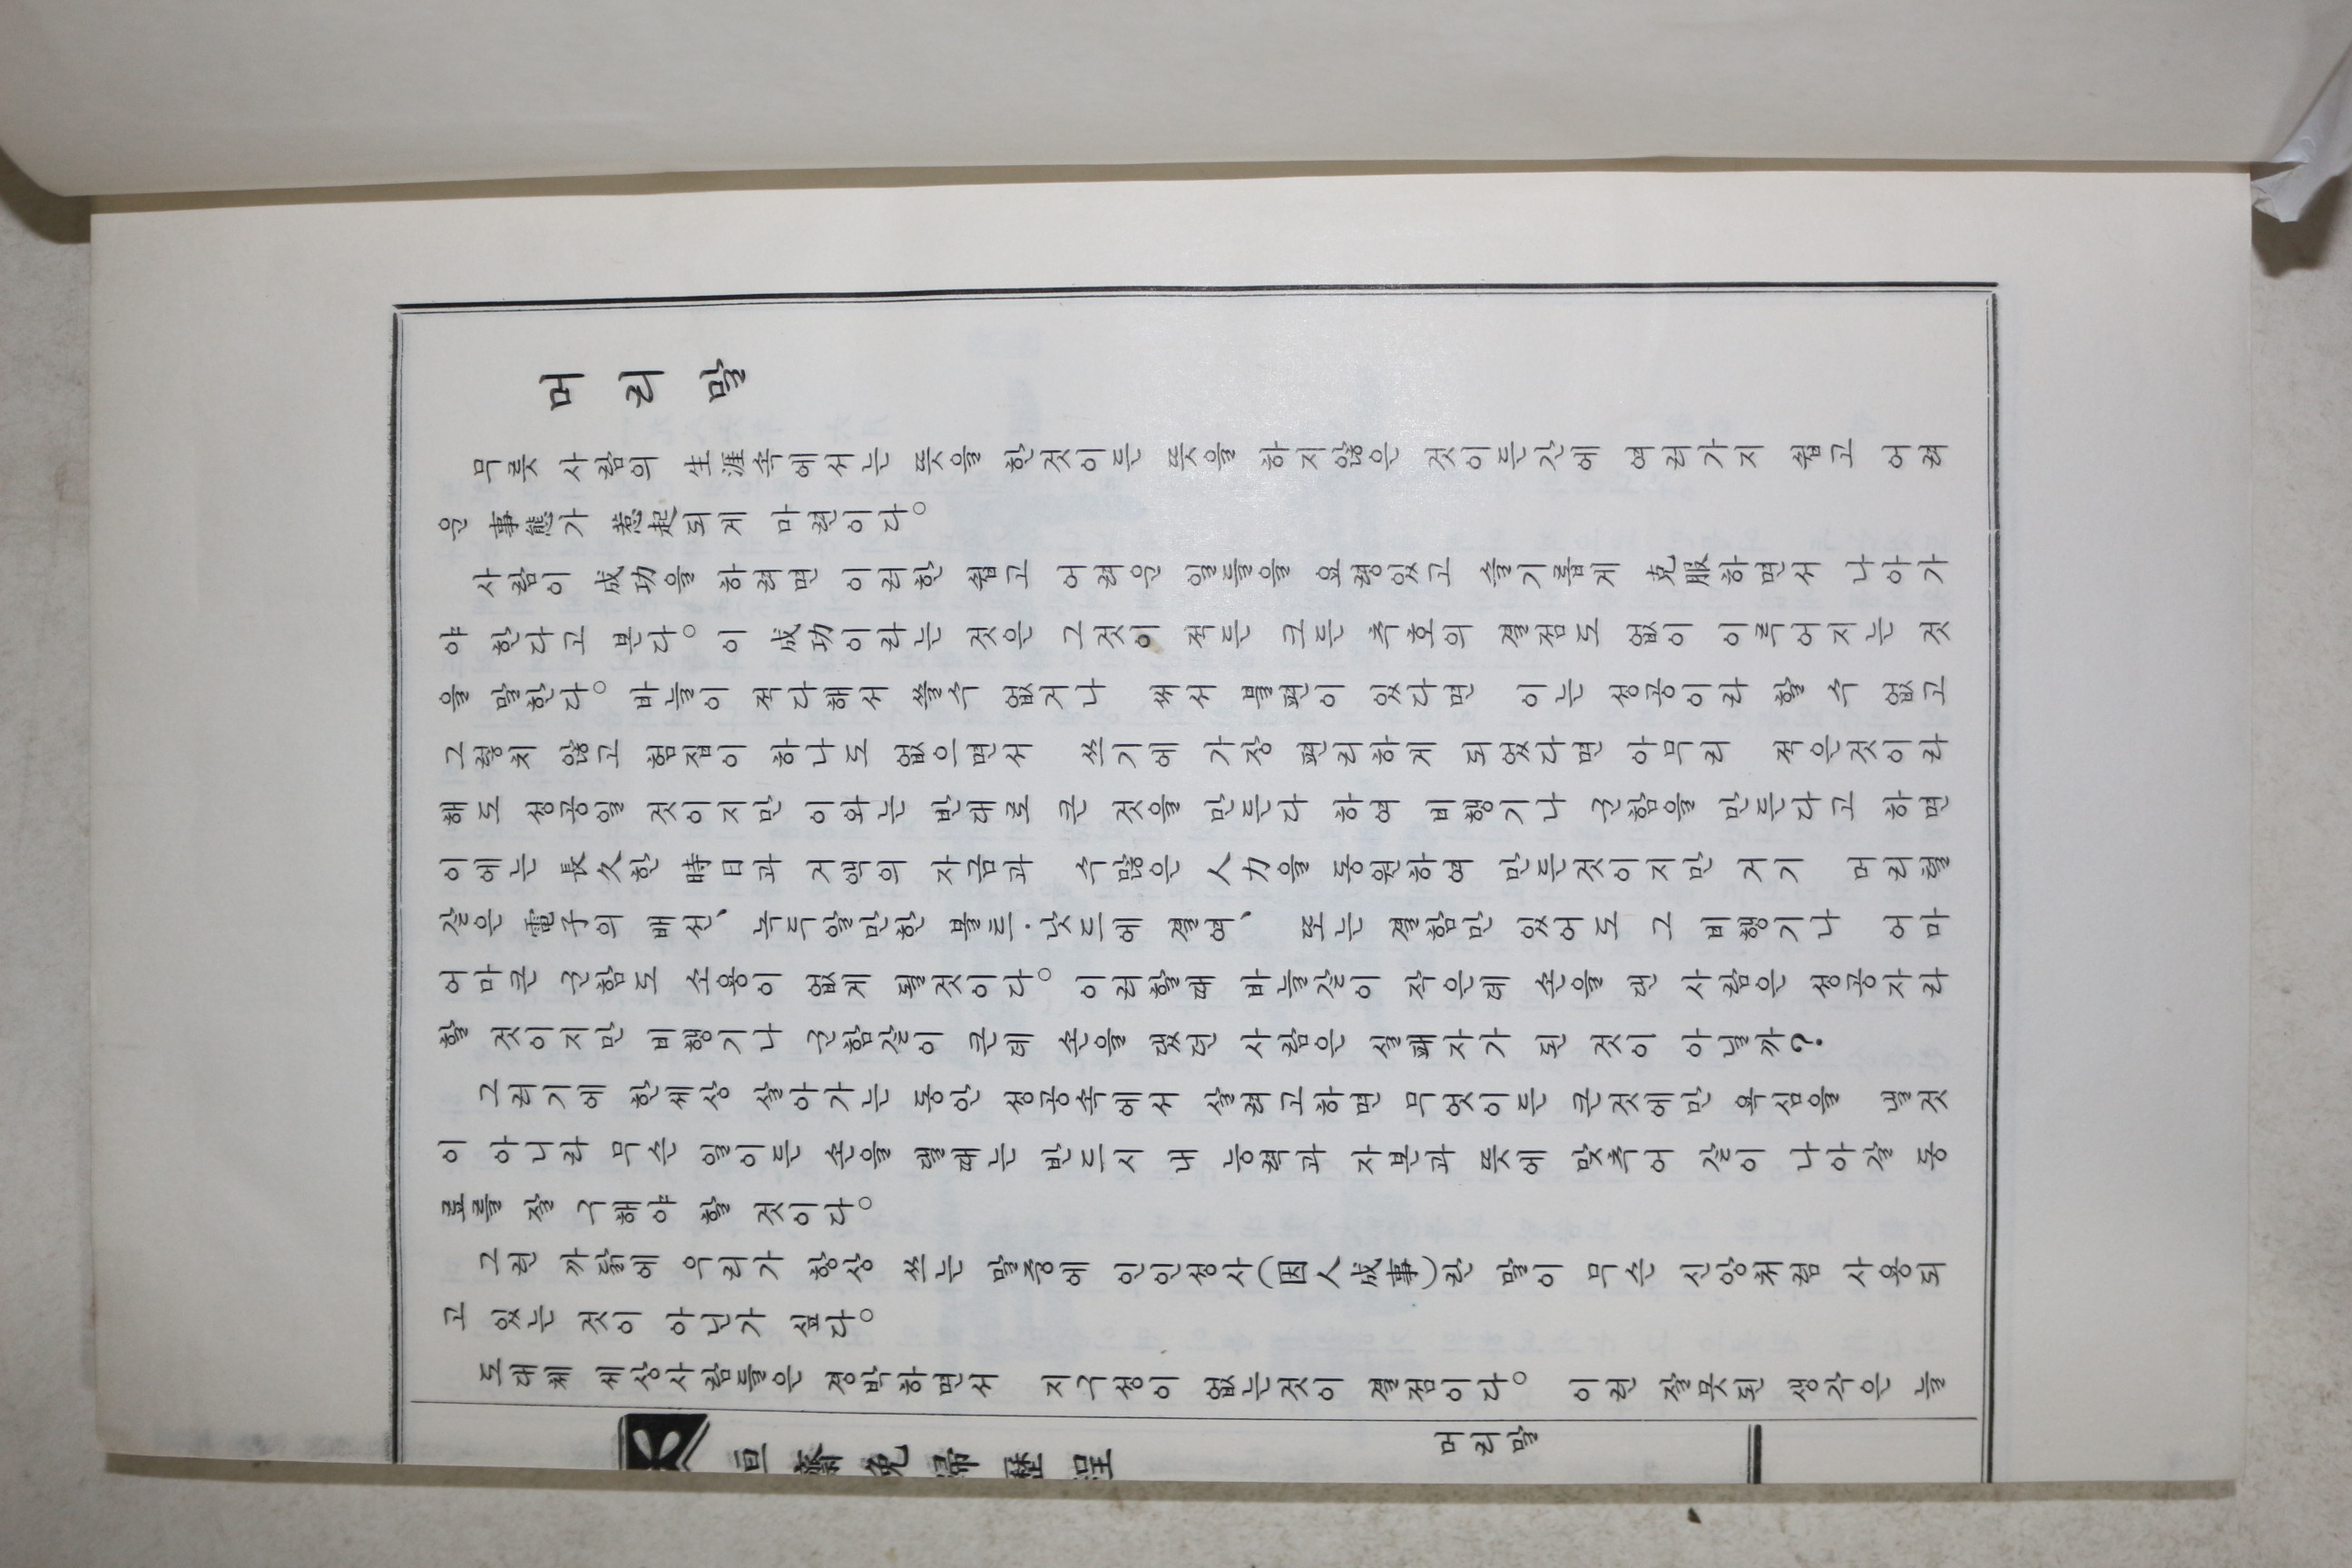 머리말
무릇 사람의 生涯속에서는 뜻을 한것이든 뜻을 하지않은 것이든간에 여러가지 쉽고 어려
운 事態가 惹起되게 마련이다。
사람이 成功을 하려면 이러한 쉽고 어려운 일들을 요령있고 슬기롭게 克服하면서 나아가
야 한다고 본다。이 成功이라는 것은 그것이 적든 크든 추호의 결점도 없이 이루어지는 것
을 말한다。바늘이 적다해서 쓸수 없거나 써서 불편이 있다면 이는 성공이라 할 수 없고
그렇치 않고 험집이 하나도 없으면서 쓰기에 가장 편리하게 되었다면 아무리 적은것이라
해도 성공일 것이지만 이와는 반대로 큰 것을 만든다 하여 비행기나 군함을 만든다고 하면
이에는 長久한 時日과 거액의 자금과 수많은 人力을 동원하여 만든것이지만 거기 머리털
같은 電子의 배선、녹두알만한 볼트·낫드에 결여、또는 결함만 있어도 그 비행기나 어마
어마큰 군함도 소용이 없게 될것이다。이러할때 바늘같이 작은데 손을 댄 사람은 성공자라
할 것이지만 비행기나 군함같이 큰데 손을 댔던 사람은 실패자가 된 것이 아닐까?
그러기에 한세상 살아가는 동안 성공속에서 살려고하면 무엇이든 큰것에만 욕심을 낼것
이 아니라 무슨 일이든 손을 댈때는 반드시 내 능력과 자본과 뜻에 맞추어 같이 나아갈 동
료를 잘 구해야 할 것이다。
그런 까닭에 우리가 항상 쓰는 말중에 인인성사(因人成事)란 말이 무슨 신앙처럼 사용되
고 있는 것이 아닌가 싶다。
도대체 세상사람들은 경박하면서 지구성이 없는것이 결점이다。이런 잘못된 생각은 늘
齋晩歸歷程
머리말